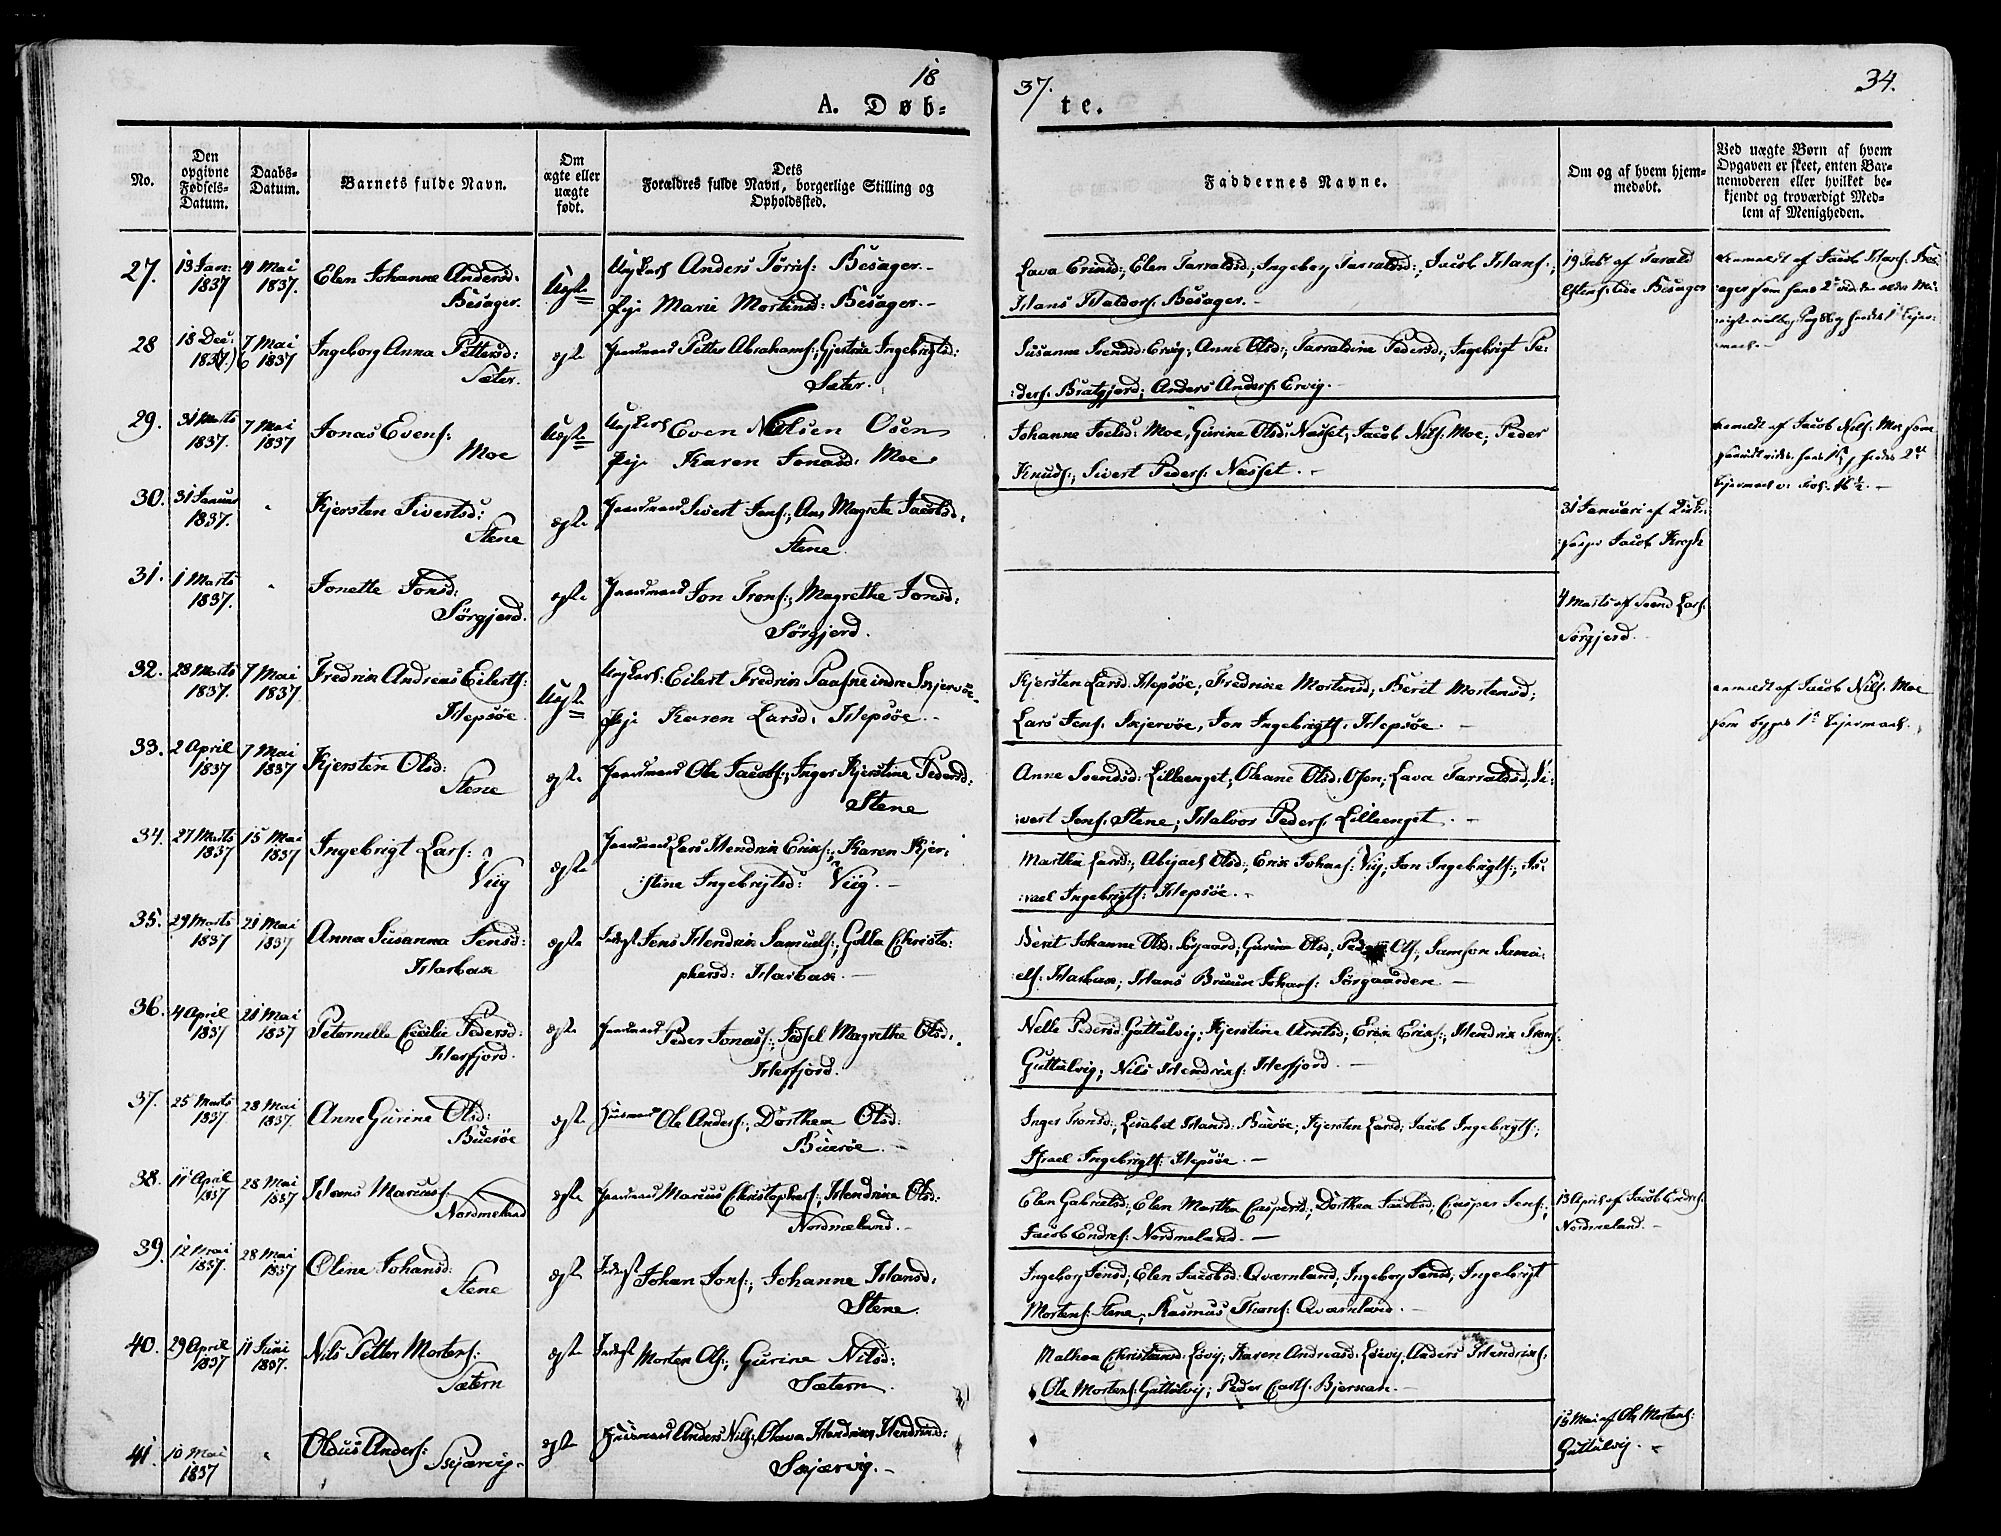 18
37.
34.
A. Døb-
te.
No.
Den opgivne Fødsels-Datum.
Daabs-Datum.
Barnets fulde Navn.
Om ægte eller uægte født.
Dets
Forældres fulde Navn, borgerlige Stilling og
Opholdssted.
Faddernes Navne.
Om og af hvem hjem-
medøbt.
Ved uægte Børn af hvem
Opgaven er skeet, enten Bar-
nemoderen eller hvilket be-
kjendt og troværdigt Med-
lem af Menigheden.
27. 13 Jan: 1837 4 Mai 1837. Elen Johanne Andersd: Besager. Uægte
Ungkarl Anders Besager.
Pige Marie Mortensd: Besager.
Lava Elen Tarraldsd:, Ingeborg Tarraldsd:, Jacob Hansf:,
Hans Haldorf: Besager.
19 Febr af Tarald
Besager
28 18 Dec: 7 Mai 1837 Ingeborg Anna Pettersd: Sæter. ægte
Gaardmand Petter Abrahamf:, Gjertrue Ingebrigtsd:
Sæter.
Susanne Svendsd: Ervig; Anne Olsd:, Tarraldine Pedersd:, Ingebrigt Pe-
:derf: Bratgjerd; Anders Andersf: Ervig.
29. 31 Marts 1837. 7 Mai 1837 Jonas Evenf: Moe Uægte
Ungkarl Even Nilsen Osen
Pige Karen Jonasd: Moe
Johanne Joelsd: Moe, Gurine Olsd: Næsset, Jacob Nilsf: Moe, Peder
Knudsf:, Sivert Pedersf: Næsset.
anmeldt af Jacob Nilsf: Moe som
30. 31 Januar 1837. Kjersten Sivertsd: Stene ægte
Gaardmand Sivert Jensf:, Ane Magrete Jacobsd:
Stene
31 Januari af
Jacob Krogh
31. 1 Marts 1837. Jonette Jonsd: Sørgjerd. ægte
Gaardmand Jon Tronsf:, Magrethe Jonsd:
Sørgjerd.
4 Marts af Svend Larsf:
Sørgjerd.
32. 28 Marts 1837. 7 Mai 1837 Fredrik Andreas Eilertsf: Hepsøe. Uægte
Ungkarl: Eilert Fredrik indre Skjervøe
Pige Karen Larsd: Hepsøe.
Kjersten Larsd: Hepsøe; Fredrikke Mortensd; Berit Mortensd;
Lars Jensf: Skjervøe, Jon Ingebrigtsf: Hepsøe.
anmeldt af Jacob Nilsf: Moe
33. 2 April 1837 7 Mai 1837 Kjersten Olsd: Stene ægte
Gaardmand Ole Jacobsf:, Inger Kjerstine Pedersd:
Stene
Anne Svendsd: Lilleenget; Oleane Olsd: Osen; Lava Tarraldsd, Si-
:vert Jensf: Stene; Halvor Pedersf: Lilleenget.
34. 27 Marts 1837 15 Mai 1837 Ingebrigt Larsf: Viig ægte
Gaardmand Lars Hendrik Eriksf:, Karen Kjer-
:stine Ingebrigtsd: Viig.
Martha Larsd:, Abijael Olsd:, Erik Johanf: Viig, Jon Ingebrigtsf:, Is-
:rael Ingebrigtsf: Hepsøe.
35. 29 Marts 1837 21 Mai 1837 Anna Susanna Jensd: Harbak ægte
Inderst Jens Hendrik Samuelsf:, Golla Christo-
phersd: Harbak.
Berit Johanna Olsd: Gurine Olsd; Peder Olsf:, Samson Samu-
elsf: Harbak; Hans Bruun Johansf: Sørgaarden
36. 4 April 1837 21 Mai 1837 Peternelle Cecilie Pedersd: Herfjord. ægte
Gaardmand Peder Jonasf:, Sidsel Magrethe Olsd:,
Herfjord.
Nelle Pedersd: Guttelvig; Kjerstina Arntsd; Erik Eriksf:, Hendrik Tronsf:
Guttelvig; Nils Hendriksf: Herfjord.
37. 25 Marts 1837. 28 Mai 1837. Anne Gurine Olsd: Buerøe ægte
Husmand Ole Andersf:, Dorthea Olsd:
Buerøe.
Inger Tronsd:, Lisabet Hansd: Buerøe; Kjersten Larsd; Jacob Ingebrigtsf:,
Israel Ingebrigtsf: Hepsøe.
38. 11 April 1837 28 Mai 1837 Hans Marcusf: Nordmeland ægte
Gaardmand Marcus Christophersf:, Hendrikke Olsd:
Nordmeland.
Elen Gabrielsd:, Elen Martha Caspersd:, Dorthea Jacobsd; Casper Jensf:,
Jacob Endresf: Nordmeland.
13 April af Jacob Endresf:
Nordmeland.
39. 12 Mai 1837. 28 Mai 1837 Oline Johansd: Stene ægte
Inderst Johan Jonsf:, Johanne Hansd:
Stene.
Ingeborg Jensd; Elen Jacobsd: Qvarnland; Ingeborg Jensd; Ingebrigt
Mortensf: Stene; Rasmus Qvarnland.
40. 29 April 1837 11 Juni 1837. Nils Petter Mortensf: Sætern ægte
Inderst Morten Olsf:, Gurine Nilsd:
Sætern.
Malhea Christiansd: Karen Andreasd: Anders Hendriksf:
Ole Mortensf: Guttelvig; Peder Bjørkan.
41. 10 Mai 1837 Oldus Andersf: Skjærvig. ægte
Husmand Anders Nilsf:, Olava Hendrikke Hendriksd:
Skjærvig.
15 Mai af Ole Mortensf:
Guttelvig.